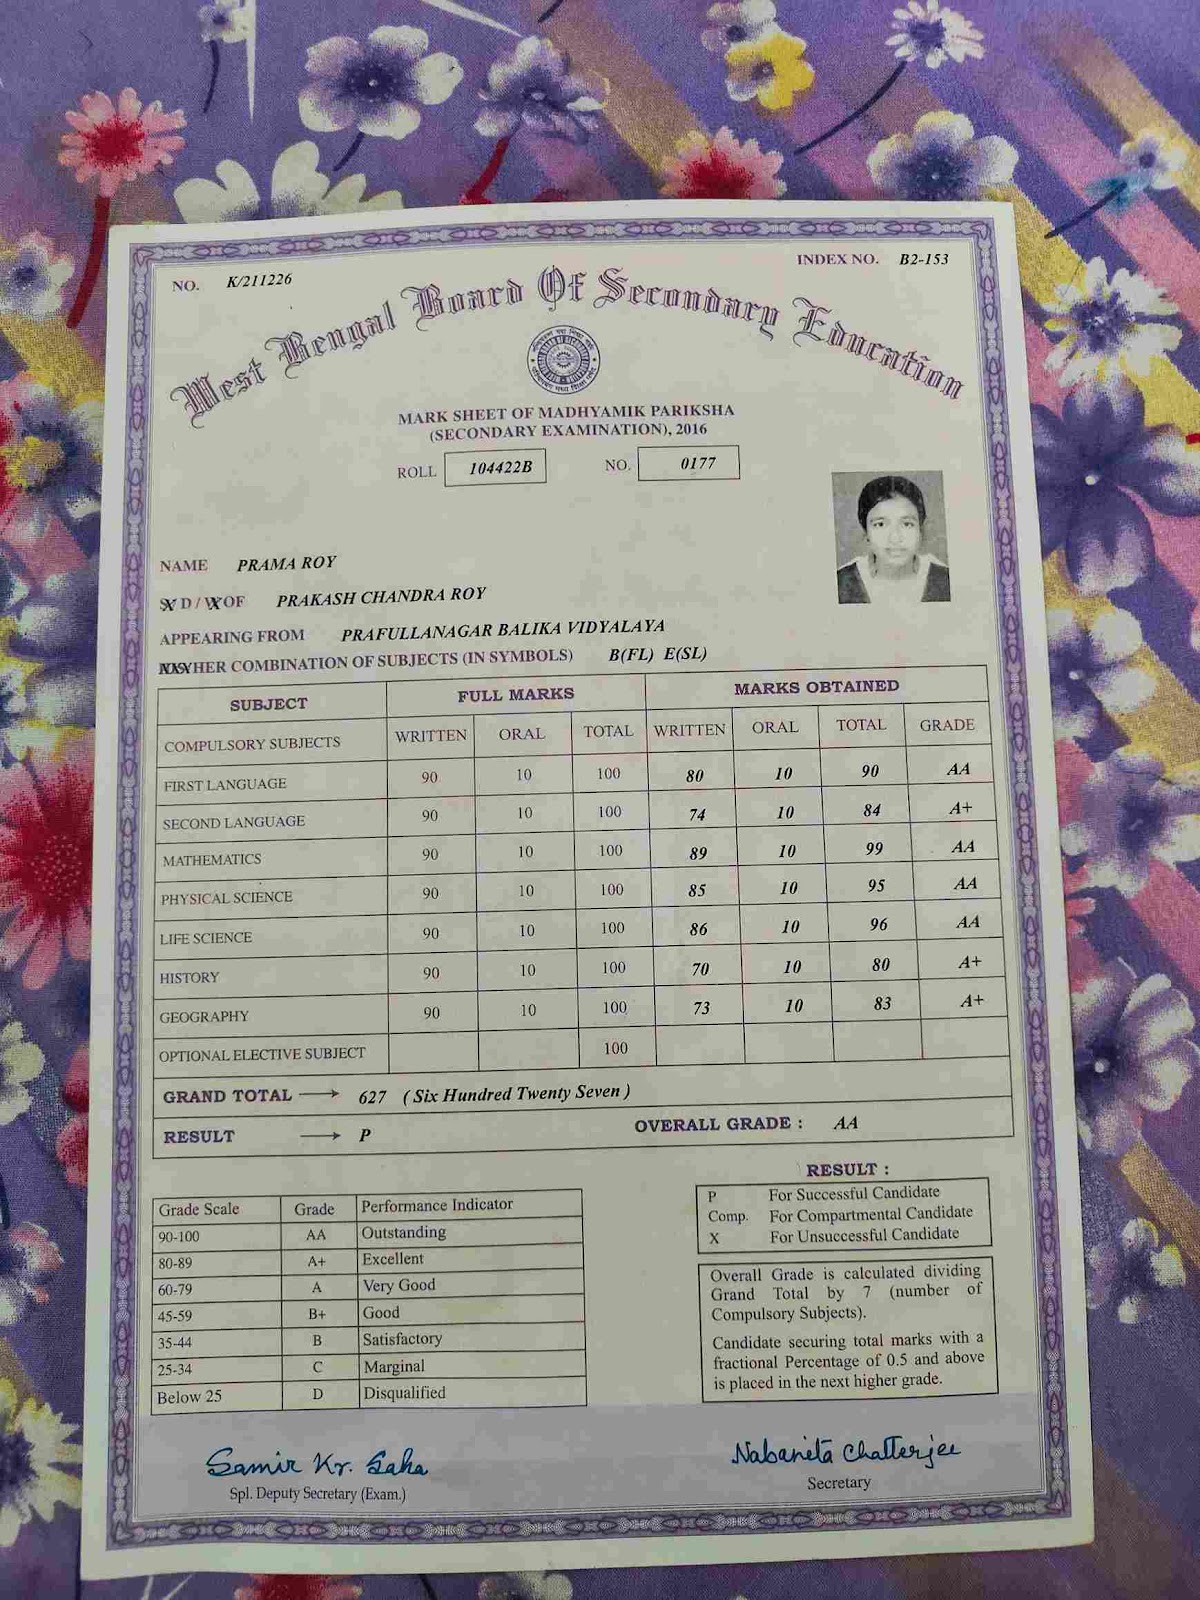 NO. K/211226 INDEX NO. B2-153
West Bengal Board Of Secondary Education
MARK SHEET OF MADHYAMIK PARIKSHA
(SECONDARY EXAMINATION), 2016
ROLL 104422B NO. 0177
NAME PRAMA ROY
D / OF PRAKASH CHANDRA ROY
APPEARING FROM PRAFULLANAGAR BALIKA VIDYALAYA
HER COMBINATION OF SUBJECTS (IN SYMBOLS) B(FL) E(SL)
SUBJECT FULL MARKS MARKS OBTAINED
COMPULSORY SUBJECTS WRITTEN ORAL TOTAL WRITTEN ORAL TOTAL GRADE
FIRST LANGUAGE 90 10 100 80 10 90 AA
SECOND LANGUAGE 90 10 100 74 10 84 A+
MATHEMATICS 90 10 100 89 10 99 AA
PHYSICAL SCIENCE 90 10 100 85 10 95 AA
LIFE SCIENCE 90 10 100 86 10 96 AA
HISTORY 90 10 100 70 10 80 A+
GEOGRAPHY 90 10 100 73 10 83 A+
OPTIONAL ELECTIVE SUBJECT 100
GRAND TOTAL → 627 ( Six Hundred Twenty Seven )
RESULT → P OVERALL GRADE : AA
Grade Scale Grade Performance Indicator
90-100 AA Outstanding
80-89 A+ Excellent
60-79 A Very Good
45-59 B+ Good
35-44 B Satisfactory
25-34 C Marginal
Below 25 D Disqualified
RESULT :
P For Successful Candidate
Comp. For Compartmental Candidate
X For Unsuccessful Candidate
Overall Grade is calculated dividing
Grand Total by 7 (number of
Compulsory Subjects).
Candidate securing total marks with a
fractional Percentage of 0.5 and above
is placed in the next higher grade.
Samir Kr. Saha
Spl. Deputy Secretary (Exam.)
Nabanita Chatterjee
Secretary